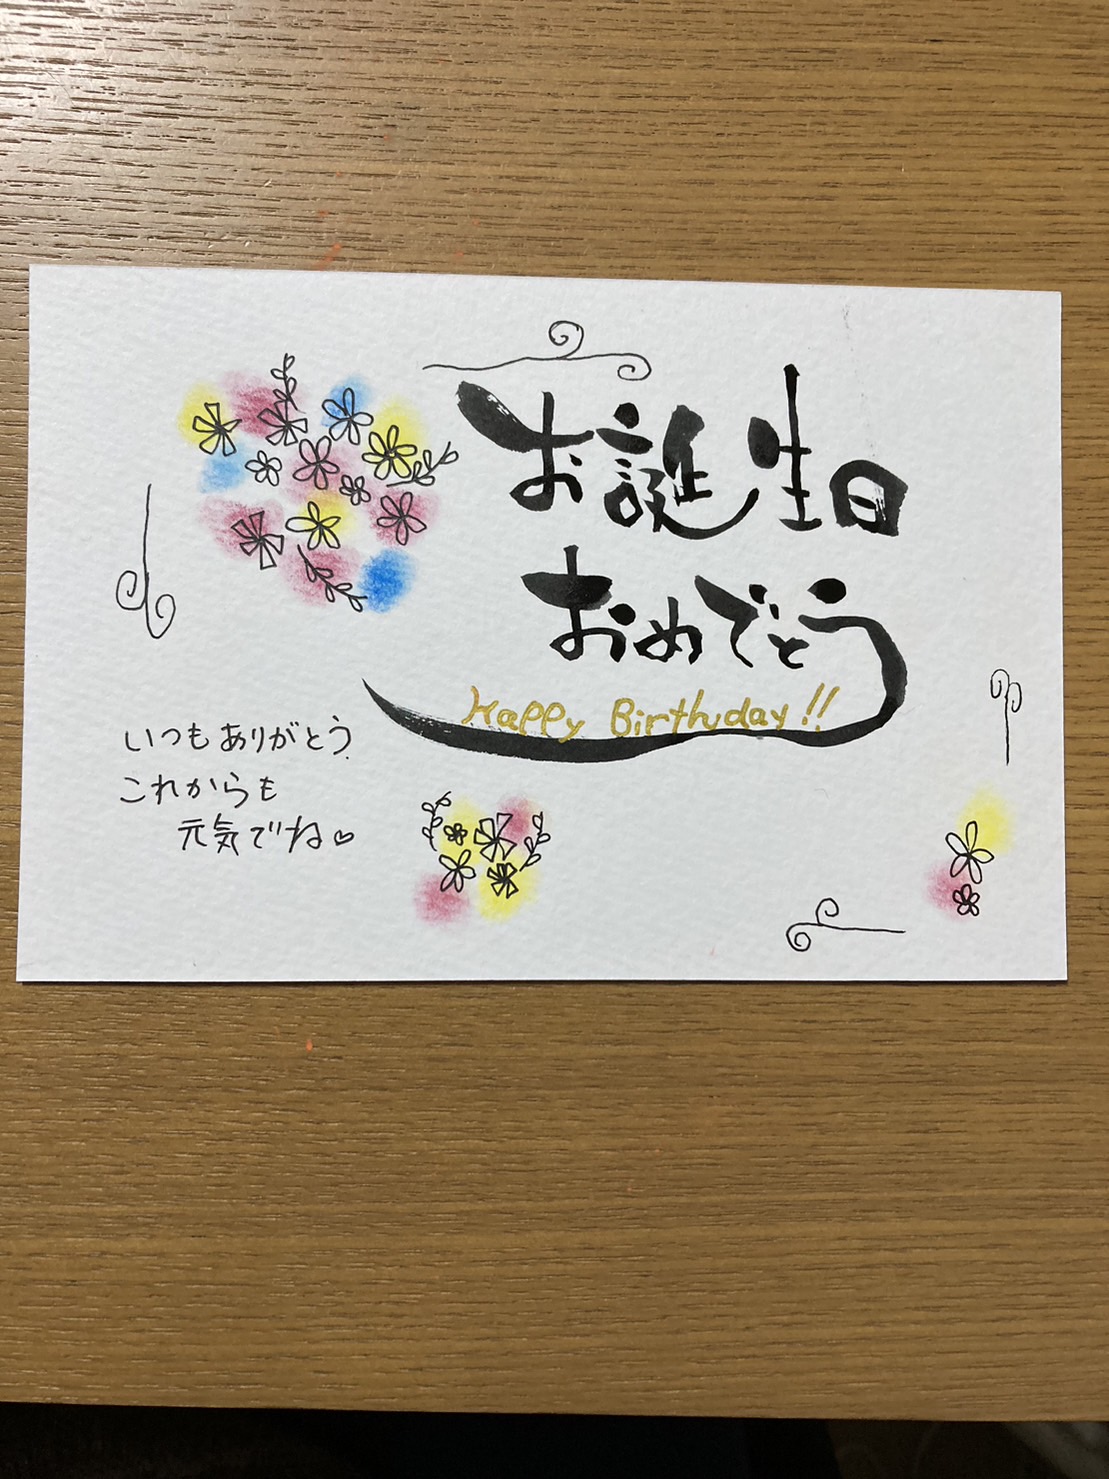 お誕生日
おめでとう
Happy Birthday!!
いつもありがとう
これからも
元気でね♡